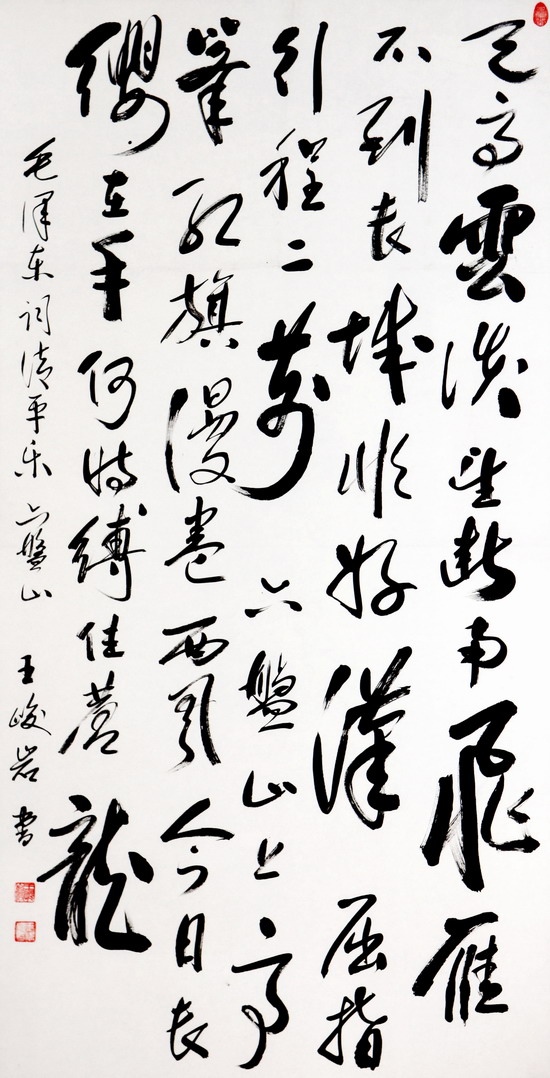 天高雲淡望斷南飛雁
不到長城非好漢屈指
行程二萬六盤山上高
峯紅旗漫卷西風今日長
纓在手何時縛住蒼龍
毛澤東詞清平樂六盤山 王峻岩書